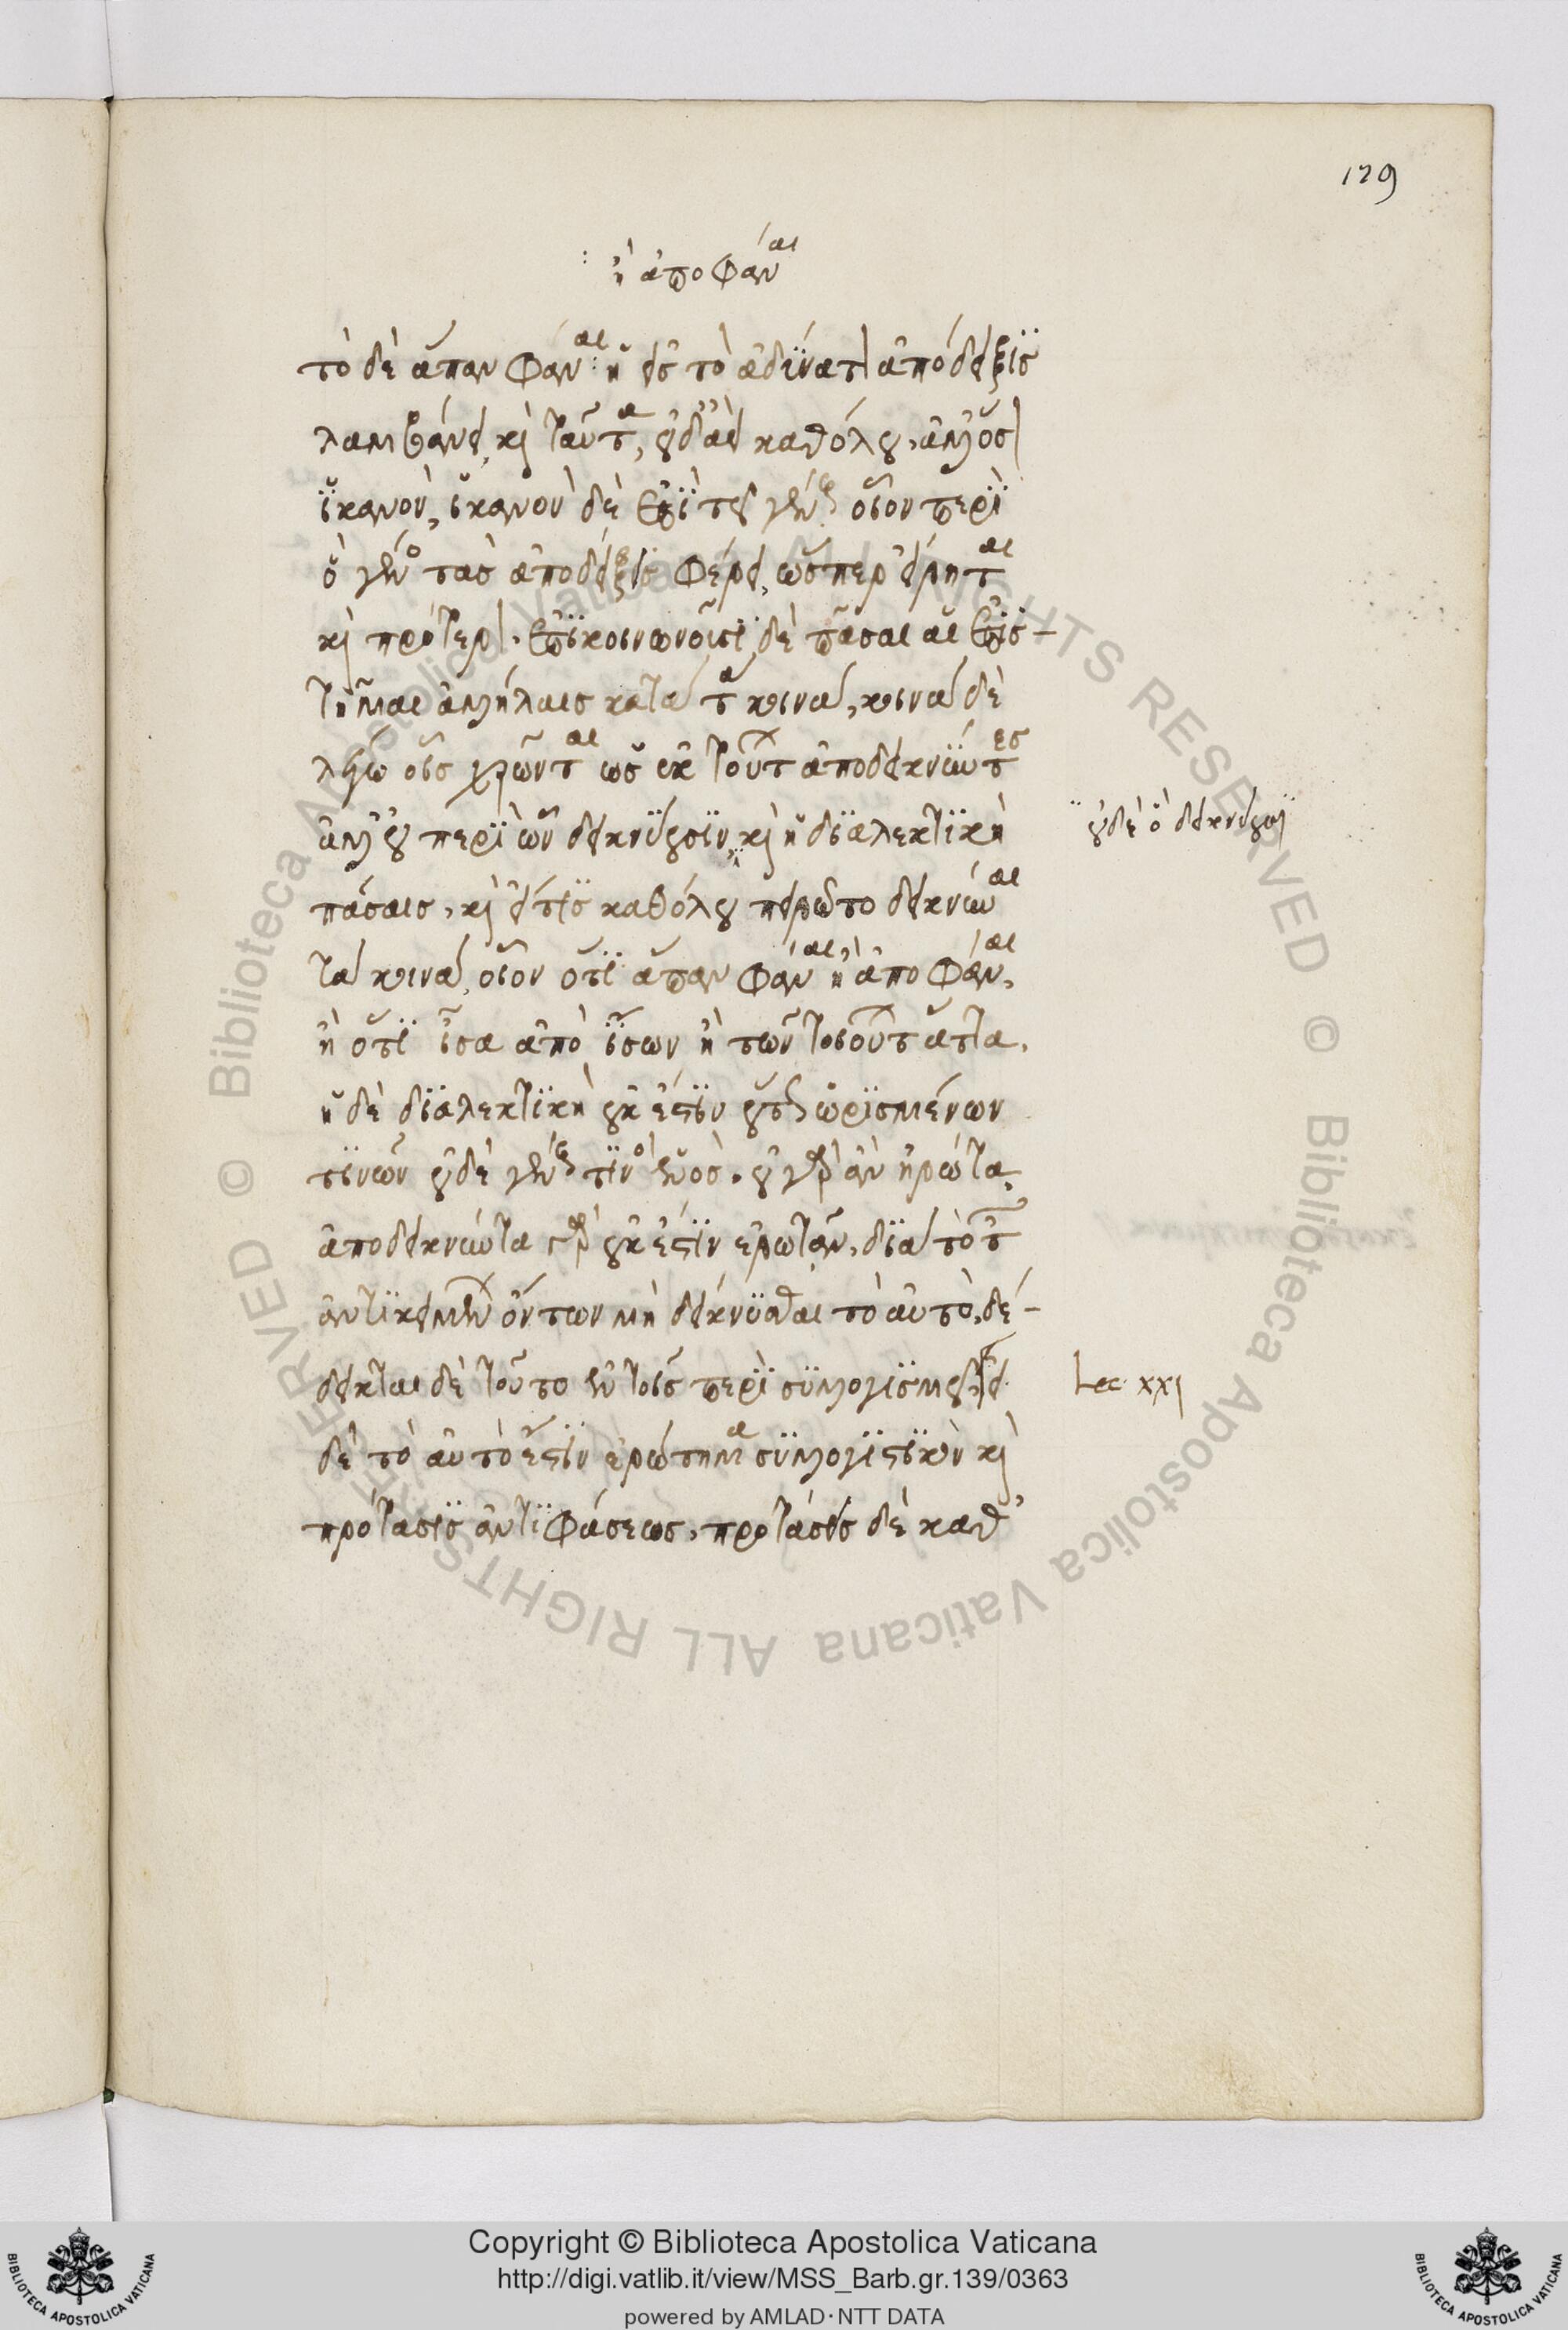 129
ἢ ἀποφάναι
τὸ δὲ ἅπαν φάναι ἡ εἰς τὸ ἀδύνατον ἀπόδειξις
λαμβάνει, καὶ ταῦτα, οὐδ' ἀεὶ καθόλου, ἀλλ' ὅσον
ἱκανὸν, ἱκανὸν δὲ ἐπὶ τοῦ γένους οἷον περὶ
ὃ γένος τὰς ἀποδείξεις φέρει, ὥσπερ εἴρηται
καὶ πρότερον. ἐπικοινωνοῦσι δὲ πᾶσαι αἱ ἐπισ-
τῆμαι ἀλλήλαις κατὰ τὰ κοινά, κοινὰ δὲ
λέγω οἷς χρῶνται ὡς ἐκ τούτων ἀποδεικνύντες
ἀλλ' οὐ περὶ ὧν δεικνύουσιν, καὶ ἡ διαλεκτικὴ
οὐδὲ ὃ δεικνύουσι
πάσαις, καὶ εἴ τις καθόλου πειρῷτο δεικνύναι
τὰ κοινά, οἷον ὅτι ἅπαν φάναι ἢ ἀποφάναι,
ἢ ὅτι ἴσα ἀπὸ ἴσων ἢ τῶν τοιούτων ἄττα.
ἡ δὲ διαλεκτικὴ οὐκ ἔστιν οὕτως ὡρισμένων
τινῶν οὐδὲ γένους τινὸς ἑνός. οὐ γὰρ ἂν ἠρώτα,
ἀποδεικνύντα γὰρ οὐκ ἔστιν ἐρωτᾶν, διὰ τὸ τῶν
ἀντικειμένων ὄντων μὴ δείκνυσθαι τὸ αὐτό, δέ-
δεικται δὲ τοῦτο ἐν τοῖς περὶ συλλογισμοῦ, εἰ
Lec. xxi
δὲ τὸ αὐτὸ ἐστὶν ἐρώτημα συλλογιστικὸν καὶ
πρότασις ἀντιφάσεως, προτάσεις δὲ καθ'
Copyright © Biblioteca Apostolica Vaticana
http://digi.vatlib.it/view/MSS_Barb.gr.139/0363
powered by AMLAD·NTT DATA
BIBLIOTECA APOSTOLICA VATICANA
BIBLIOTECA APOSTOLICA VATICANA
© Biblioteca Apostolica Vaticana ALL RIGHTS RESERVED © Biblioteca Apostolica Vaticana ALL RIGHTS RESERVED